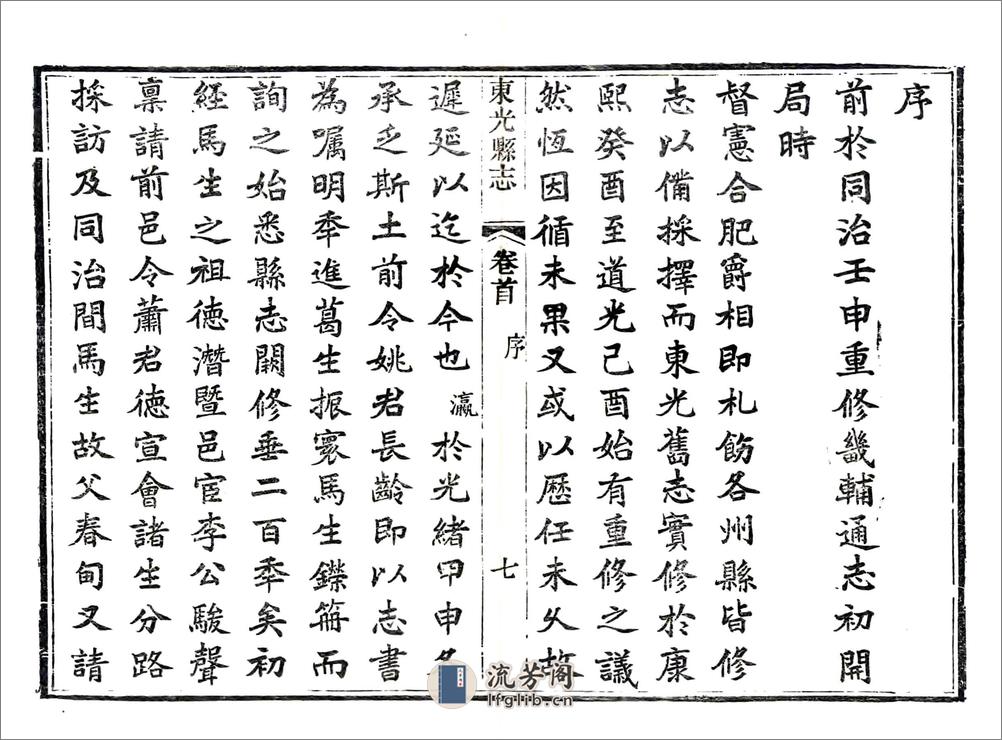 序
前於同治壬申重修畿輔通志初開
局時
督憲合肥爵相即札飭各州縣皆修
志以備採擇而東光舊志實修於康
熙癸酉至道光己酉始有重修之議
然恆因循未果又或以歷任未久故
東光縣志
卷首
序
七
遲延以迄於今也瀛於光緒甲申
承乏斯土前令姚君長齡即以志書
為囑明年進葛生振寰馬生鑅箝而
詢之始悉縣志闕修垂二百年矣初
經馬生之祖德潛暨邑宦李公駿聲
稟請前邑令蕭君德宣會諸生分路
採訪及同治間馬生故父春甸又請
流芳阁
lfglib.cn